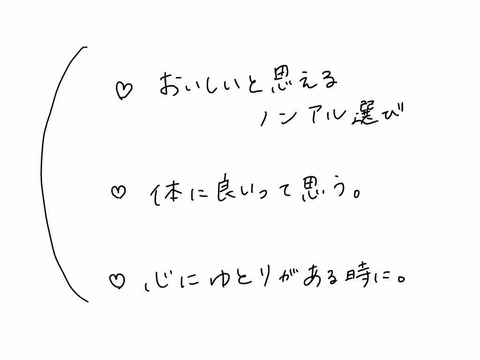 ♡ おいしいと思える
ノンアル選び
♡ 体に良いって思う。
♡ 心にゆとりがある時に。